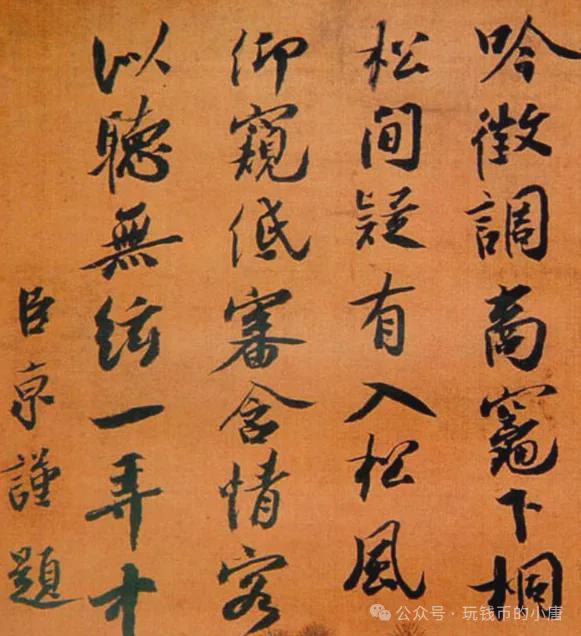 吟徵調商竈下桐
松間疑有入松風
仰窺低審含情客
以聽無絃一弄中
臣京謹題
公众号 · 玩钱币的小唐